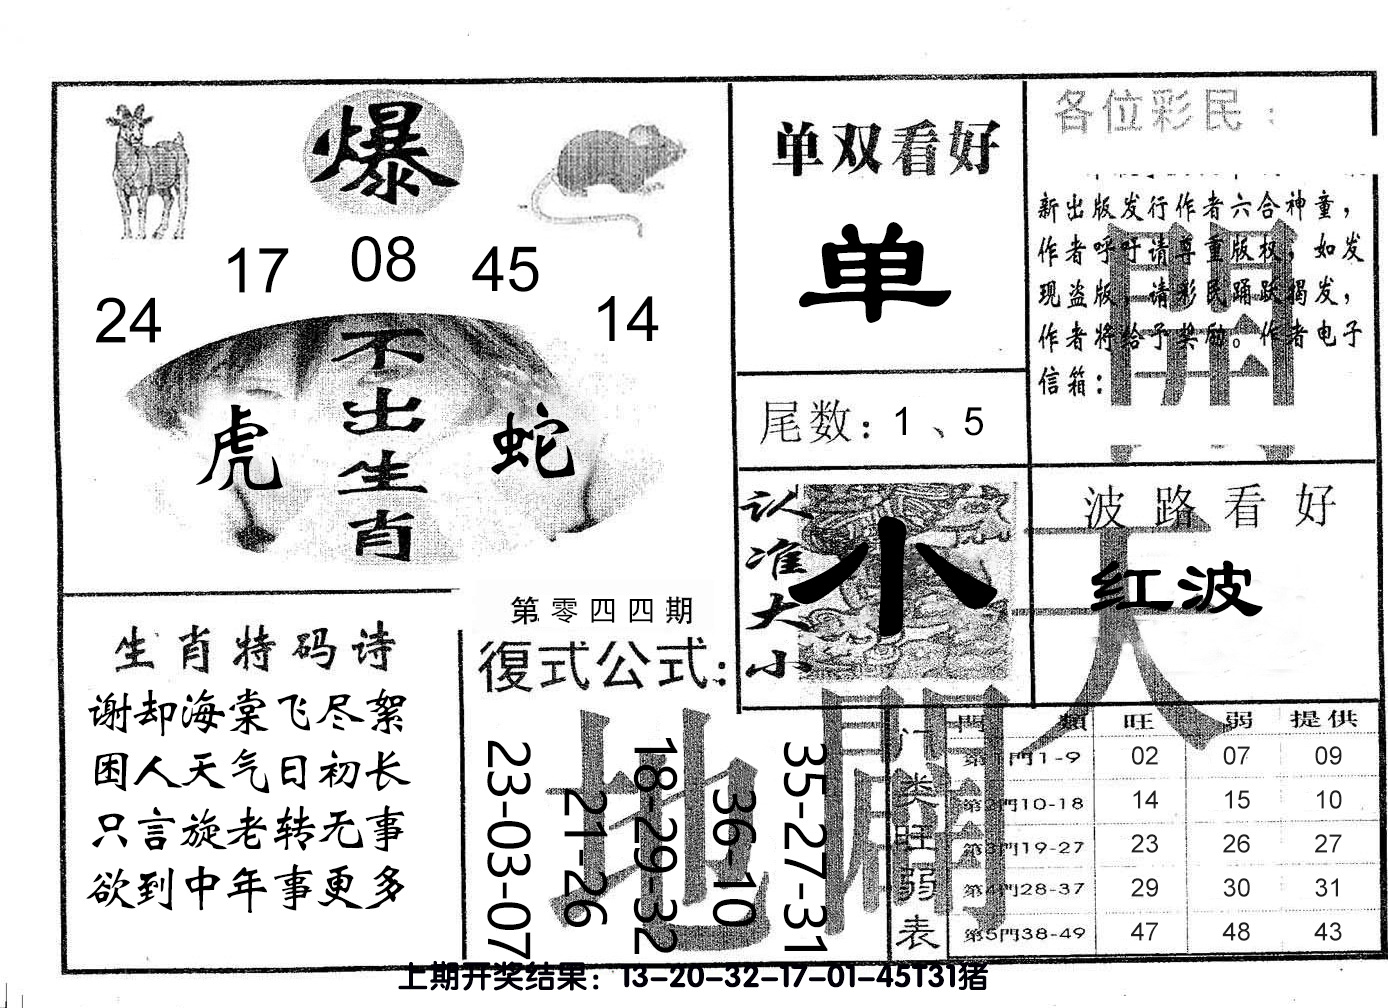 爆
24 17 08 45 14
不出生肖
虎 蛇
单双看好
单
尾数：1、5
认准大小
小
各位彩民：
新出版发行作者六合神童，
作者呼吁请尊重版权，如发
现盗版，请彩民踊跃揭发，
作者将给予奖励。作者电子
信箱：
波路看好
红波
生肖特码诗
谢却海棠飞尽絮
困人天气日初长
只言旋老转无事
欲到中年事更多
第零四四期
復式公式：
23-03-07
21-26
18-29-32
36-10
35-27-31
天
地
開
門类旺弱表
門類 旺 弱 提供
第1門1-9 02 07 09
第2門10-18 14 15 10
第3門19-27 23 26 27
第4門28-37 29 30 31
第5門38-49 47 48 43
上期开奖结果：13-20-32-17-01-45T31猪